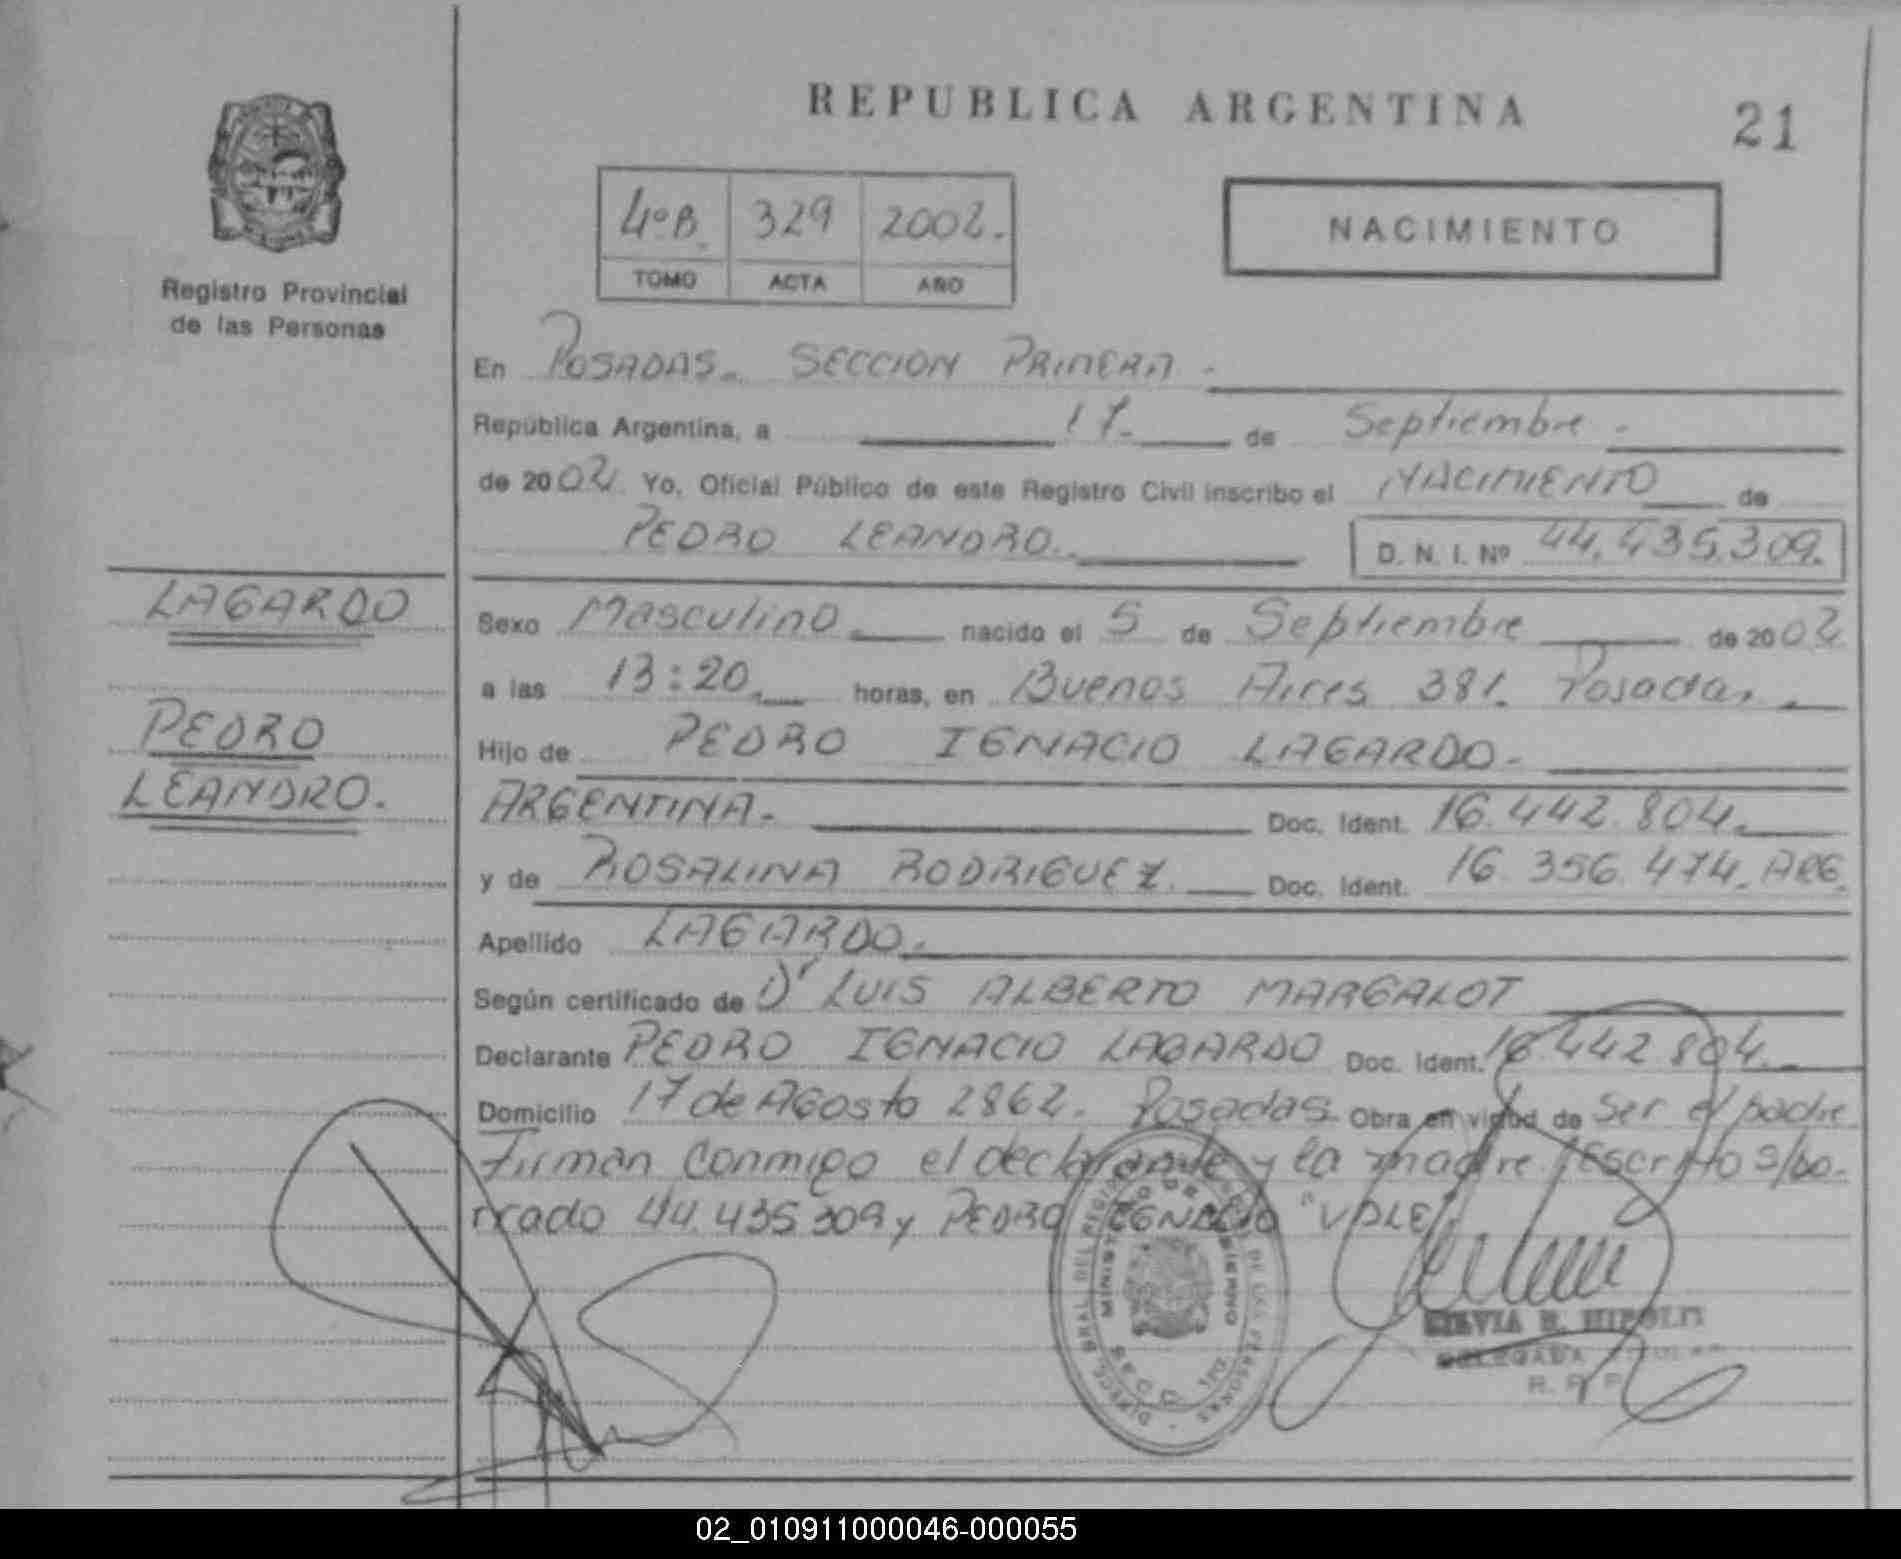 REPUBLICA ARGENTINA
21
4º B. 329 2002.
TOMO ACTA AÑO
NACIMIENTO
Registro Provincial
de las Personas
En POSADAS. SECCION PRIMERA.
República Argentina, a 17. de Septiembre.
de 2002 Yo, Oficial Público de este Registro Civil inscribo el NACIMIENTO de
PEDRO LEANDRO. D. N. I. Nº 44.435.309.
LAGARDO
PEDRO
LEANDRO.
Sexo Masculino nacido el 5 de Septiembre de 2002
a las 13:20 horas, en Buenos Aires 381. Posadas.
Hijo de PEDRO IGNACIO LAGARDO.
ARGENTINA. Doc. Ident. 16.442.804.
y de ROSALINA RODRIGUEZ. Doc. Ident. 16.356.474. ARG.
Apellido LAGARDO.
Según certificado de Dr LUIS ALBERTO MARGALOT
Declarante PEDRO IGNACIO LAGARDO Doc. Ident. 16.442.804.
Domicilio 17 de Agosto 2862. Posadas. Obra en virtud de Ser el padre
Firman conmigo el declarante y la madre. Escrito s/bo-
rrado 44.435.309 y PEDRO IGNACIO "VALE".
SILVIA R.
DELEGADA
02_010911000046-000055